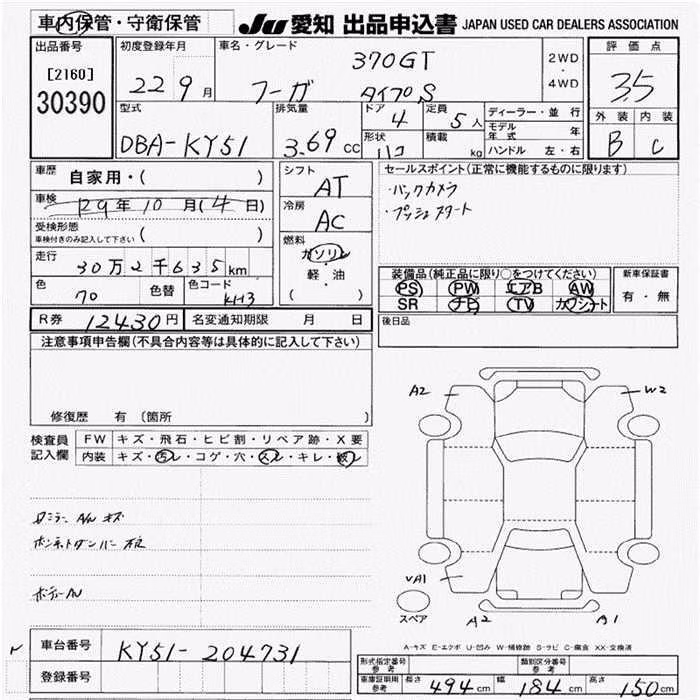 車内保管・守衛保管
JU 愛知 出品申込書 JAPAN USED CAR DEALERS ASSOCIATION
出品番号
[2160]
30390
初度登録年月
22 9月
車名・グレード
370GT
フーガ タイプS
2WD
・
4WD
評価点
3.5
外装 内装
B C
型式
DBA-KY51
排気量
3.69cc
ドア
4
定員
5人
形状
ハコ
積載
kg
ディーラー・並行
モデル年式 年
ハンドル 左・右
車歴
自家用・( )
車検
29年10月(4日)
受検形態
車検付きのみ記入して下さい ( )
走行
30万2千635km
色
色替
色コード
KH3
シフト
AT
冷房
AC
燃料
ガソリン
・
軽・油
( )
セールスポイント(正常に機能するものに限ります)
・バックカメラ
・プッシュスタート
装備品(純正品に限り○をつけてください)
PS PW エアB AW
SR ナビ TV カワシート
新車保証書
有・無
後日品
R券 12430円 名変通知期限 月 日
注意事項申告欄(不具合内容等は具体的に記入して下さい)
修復歴 有 (箇所 )
検査員記入欄
FW キズ・飛石・ヒビ割・リペア跡・X要
内装 キズ・汚レ・コゲ・穴・スレ・キレ・破レ
A2 W2
VA1
A2 B1
スペア
A-キズ E-エクボ U-凹み W-補修跡 S-サビ C-腐食 XX-交換済
車台番号 KY51-204731
登録番号
形式指定番号 参考
類別区分番号 参考
車庫証明用 参考 長さ 494cm 幅 184cm 高さ 150cm